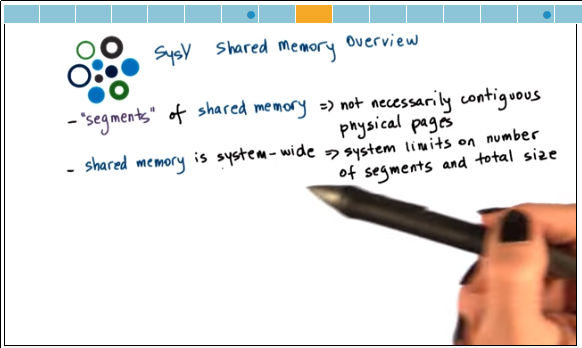 SysV Shared Memory Overview
- "segments" of shared memory => not necessarily contiguous
physical pages
- shared memory is system-wide => system limits on number
of segments and total size